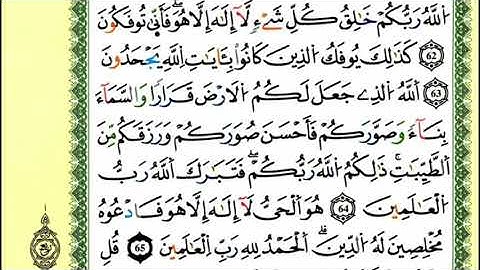 اللَّهُ رَبُّكُمْ خَٰلِقُ كُلِّ شَےْءٖ لَّآ إِلَٰهَ إِلَّا هُوَۖ فَأَنّ۪يٰ تُوفَكُونَ
٦٢ كَذَٰلِكَ يُوفَكُ الذِينَ كَانُواْ بِـَٔايَٰتِ اِللَّهِ يَجْحَدُونَ
٦٣ اَ۬للَّهُ الذِے جَعَلَ لَكُمُ اُ۬لَارْضَ قَرَاراٗ وَالسَّمَآءَ
بِنَآءٗ وَصَوَّرَكُمْ فَأَحْسَنَ صُوَرَكُمْ وَرَزَقَكُم مِّنَ
اَ۬لطَّيِّبَٰتِۚ ذَٰلِكُمُ اُ۬للَّهُ رَبُّكُمْۖ فَتَبَٰرَكَ اَ۬للَّهُ رَبُّ
اُ۬لْعَٰلَمِينَۖ ٦٤ هُوَ اَ۬لْحَيُّ لَآ إِلَٰهَ إِلَّا هُوَ فَادْعُوهُ
مُخْلِصِينَ لَهُ اُ۬لدِّينَۖ اَ۬لْحَمْدُ لِلهِ رَبِّ اِ۬لْعَٰلَمِينَۖ ٦٥ قُلِ